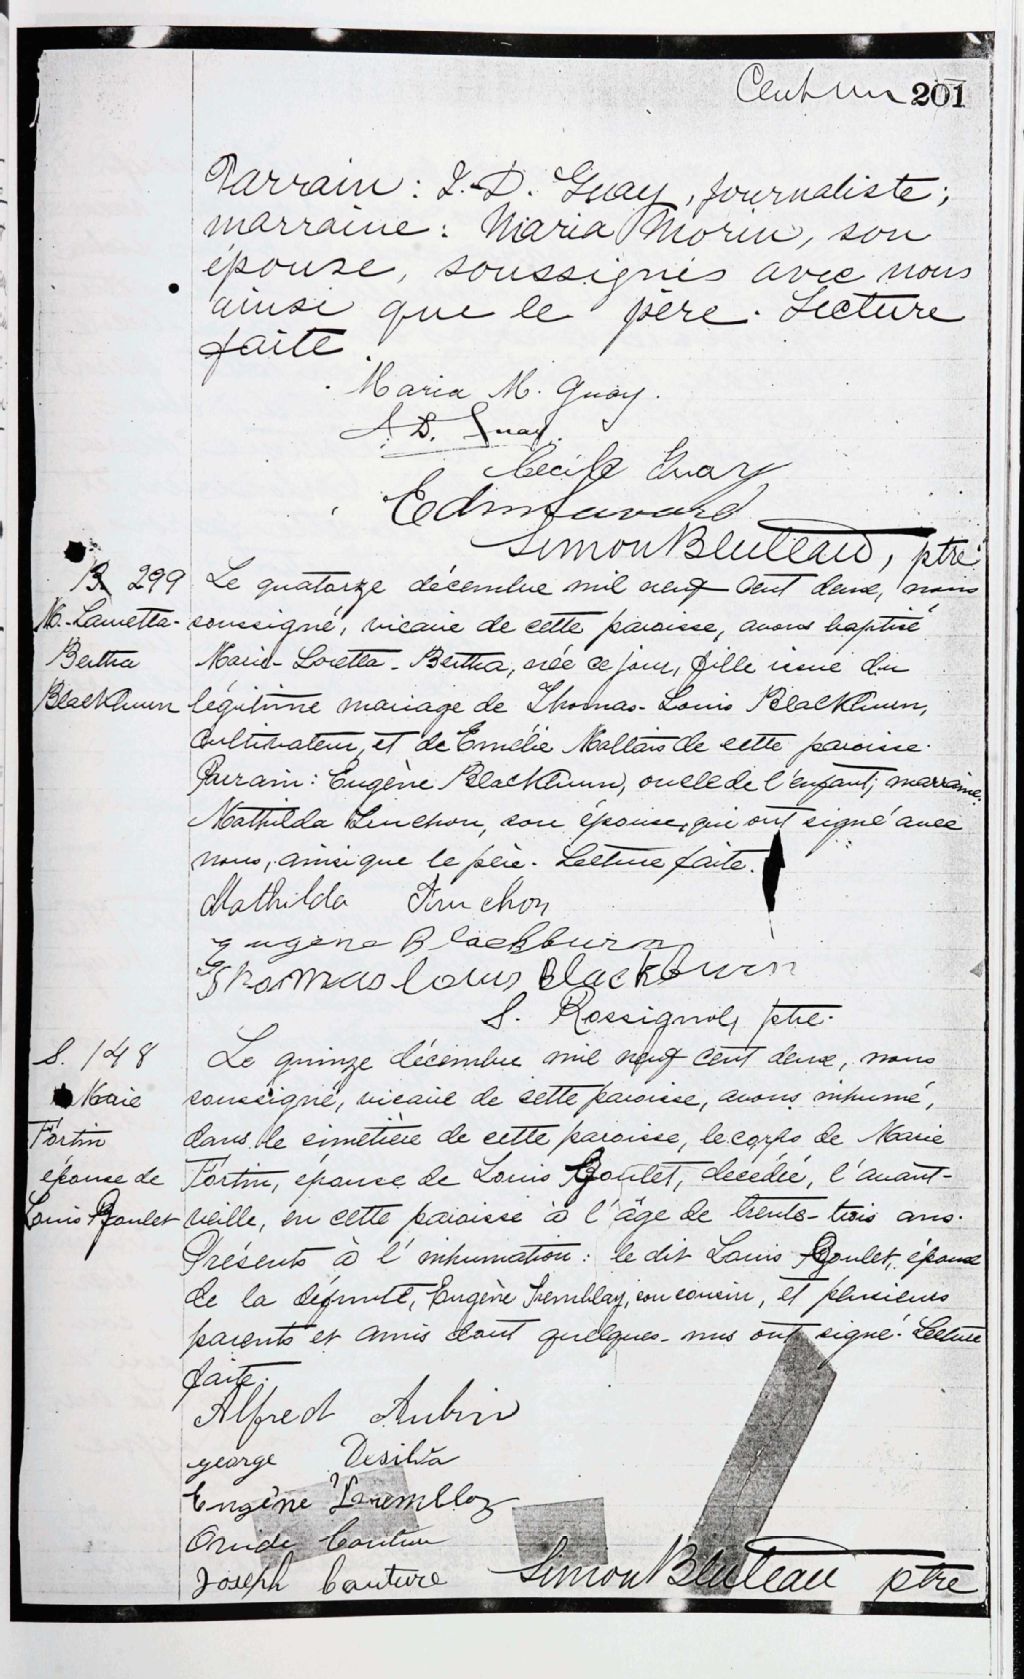 Cent un 201
Parrain: J.-D. Guay, journaliste;
marraine: Maria Morin, son
épouse, soussignés avec nous
ainsi que le père. Lecture
faite.
Maria M. Guay.
J. D. Guay.
Cecile Guay
Edm Savard
Simon Bluteau, ptre
B 299
M.-Lauretta-
Bertha
Blackburn
Le quatorze décembre mil neuf cent deux, nous
soussigné, vicaire de cette paroisse, avons baptisé
Marie-Loretta-Bertha, née ce jour, fille issue du
légitime mariage de Thomas-Louis Blackburn,
cultivateur, et de Emélie Maltais de cette paroisse.
Parrain: Eugène Blackburn, oncle de l'enfant; marraine:
Mathilda Finchon, son épouse, qui ont signé avec
nous, ainsi que le père. Lecture faite.
Mathilda
Eugene Blackburn
Thomas louis Blackburn
S. Rossignol, ptre.
S. 148
Marie
Fortin
épouse de
Louis Goulet
Le quinze décembre mil neuf cent deux, nous
soussigné, vicaire de cette paroisse, avons inhumé,
dans le cimetière de cette paroisse, le corps de Marie
Fortin, épouse de Louis Goulet, décédée, l'avant-
veille, en cette paroisse à l'âge de trente-trois ans.
Présents à l'inhumation: le dit Louis Goulet, époux
de la défunte, Eugène Tremblay, son cousin, et plusieurs
parents et amis dont quelques-uns ont signé. Lecture
faite.
Alfred Aubin
george Desilva
Eugène Tremblay
Ovide Couture
Joseph Couture Simon Bluteau ptre